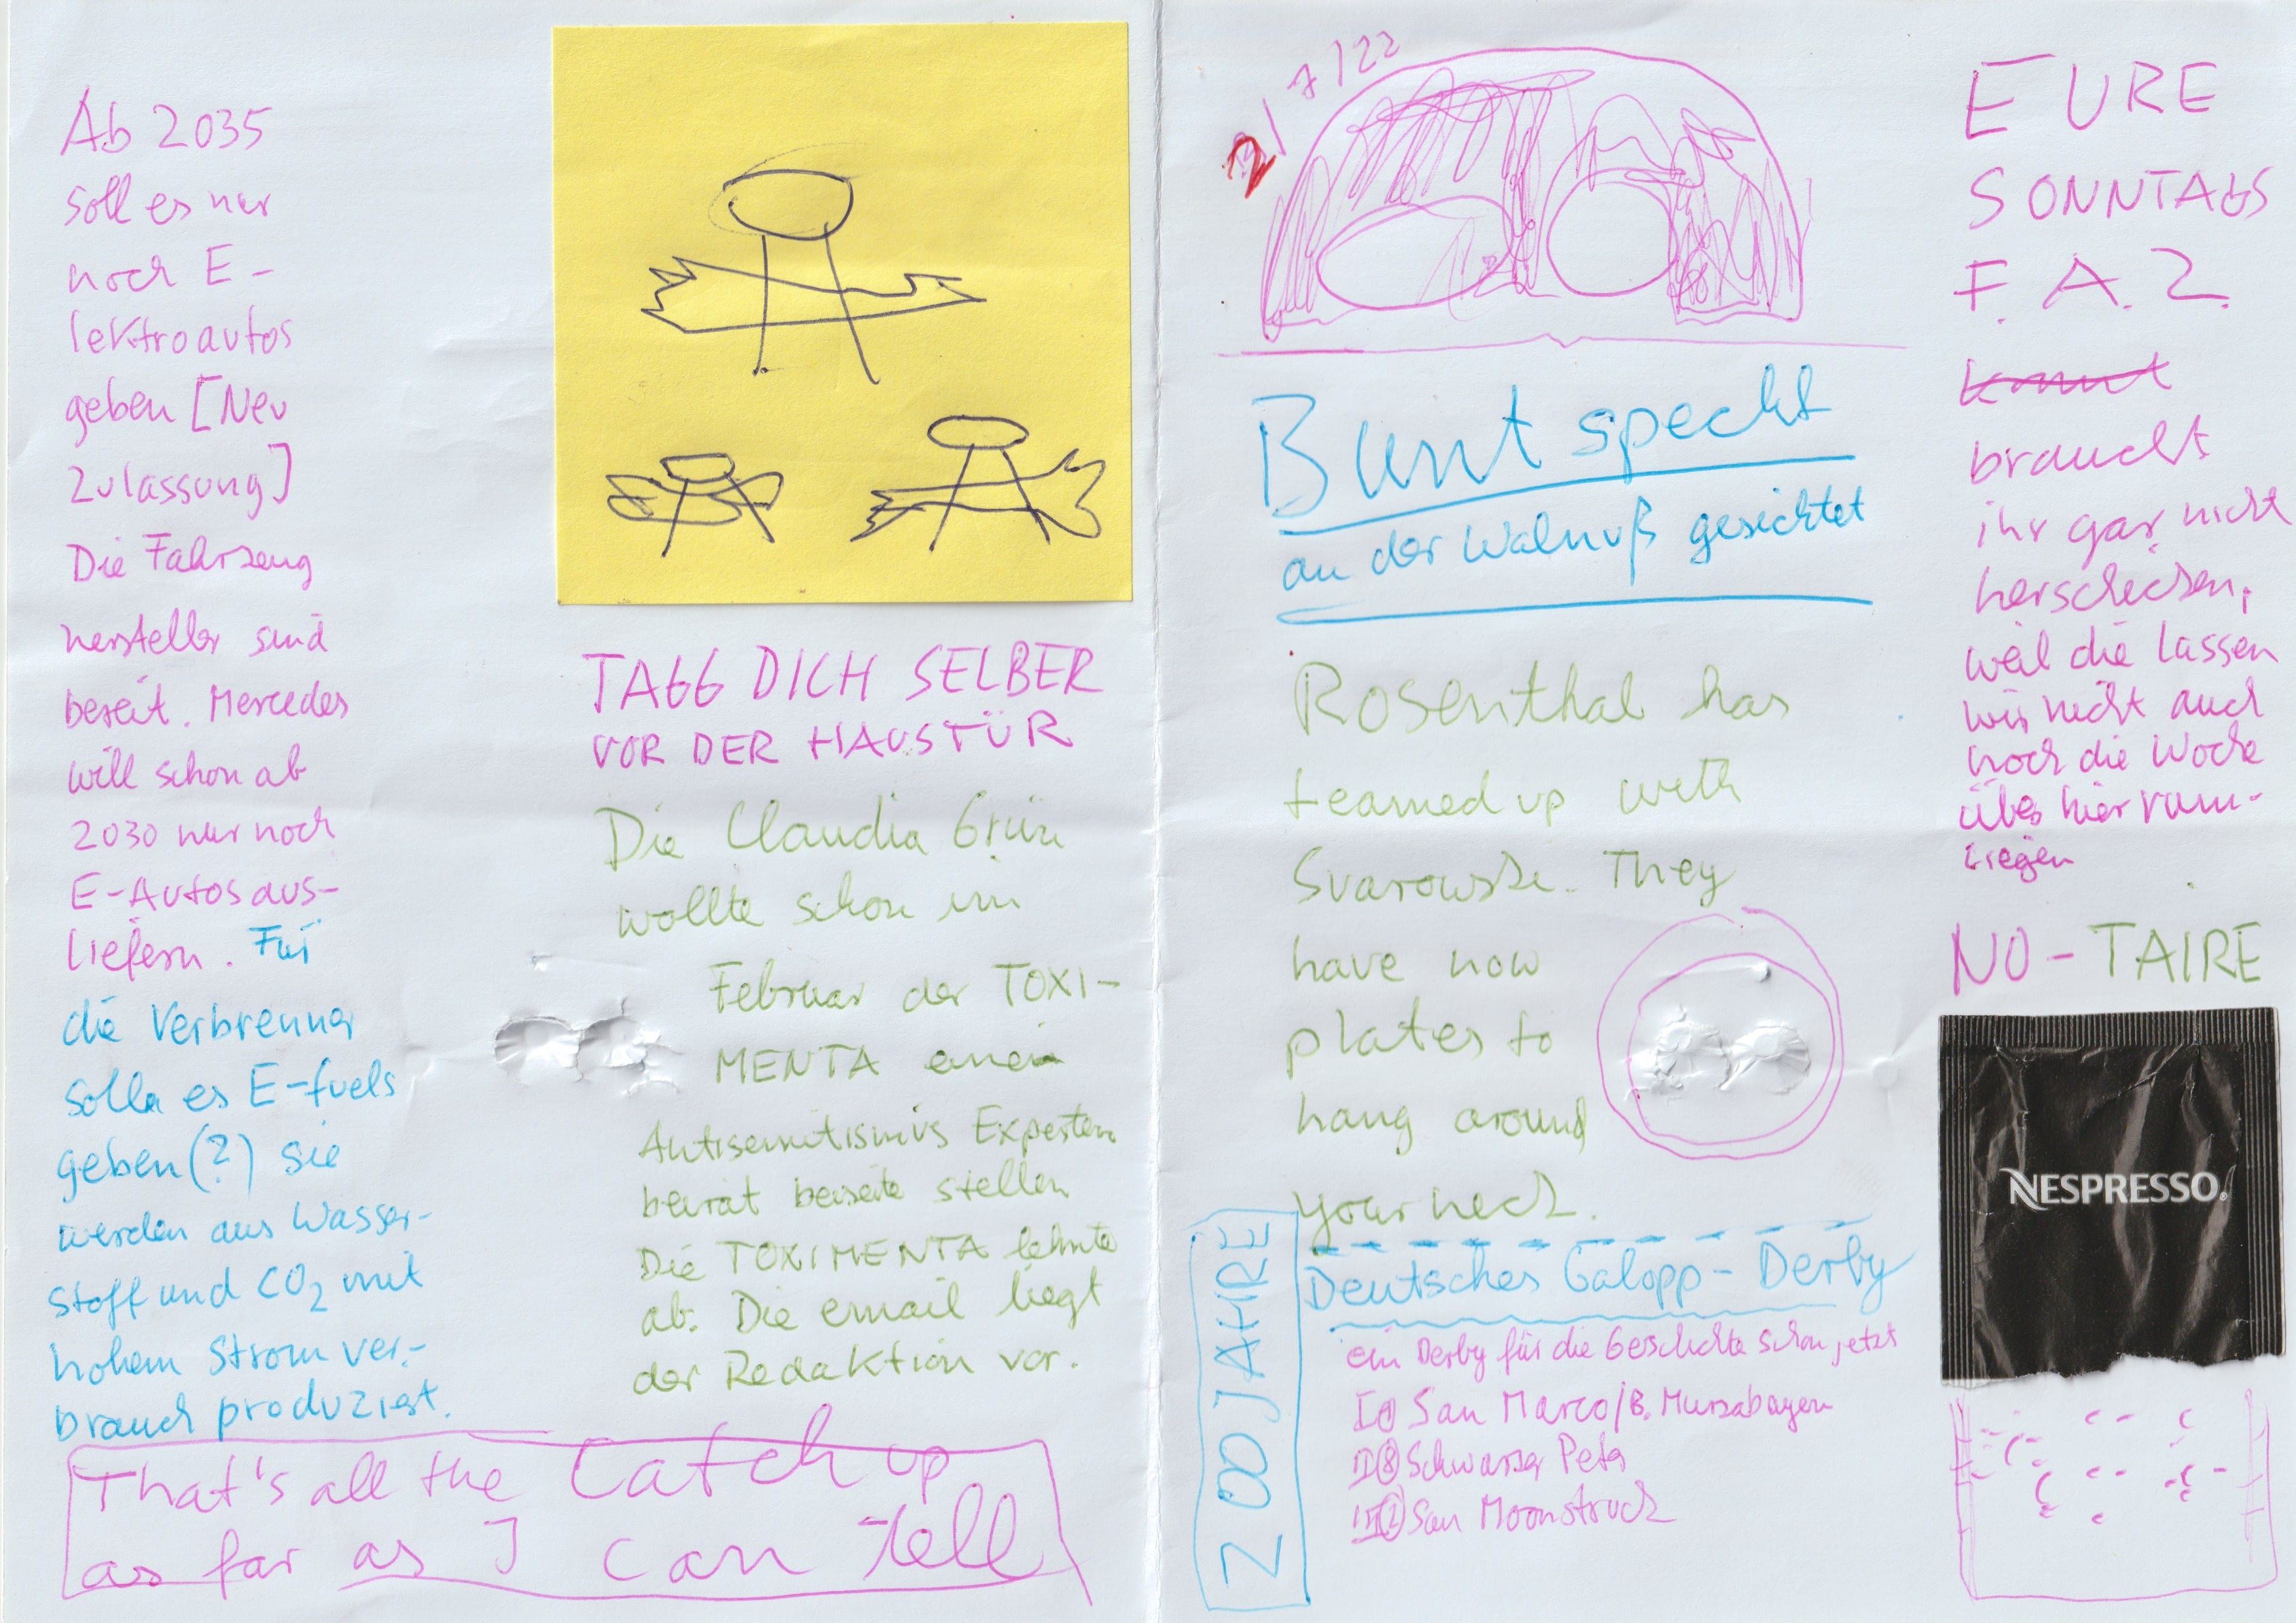 Ab 2035
soll es nur
noch E-
lektroautos
geben [Neu
Zulassung]
Die Fahrzeug
hersteller sind
bereit. Mercedes
will schon ab
2030 nur noch
E-Autos aus-
liefern. Für
die Verbrenner
solln es E-fuels
geben (?) sie
werden aus Wasser-
stoff und CO2 mit
hohem Strom ver-
brauch produziert.
That's all the catch up
as far as I can tell
TAGG DICH SELBER
VOR DER HAUSTÜR
Die Claudia Grün
wollte schon im
Februar der TOXI-
MENTA einen
Antisemitismus Experten
beirat beiseite stellen
Die TOXIMENTA lehnte
ab. Die email liegt
der Redaktion vor.
2/7/22
Buntspecht
an der Walnuß gesichtet
Rosenthal has
teamed up with
Svarowski. They
have now
plates to
hang around
your neck.
200 JAHRE
Deutsches Galopp-Derby
ein Derby für die Geschichte schon jetzt
I San Marco/B. Murzabayev
II 8 Schwarzer Peter
III San Moonstruck
EURE
SONNTAGS
F.A.Z.
kommt
braucht
ihr gar nicht
herschicken,
weil die lassen
wir nicht auch
noch die Woche
über hier rum-
liegen
NO-TAIRE
NESPRESSO.